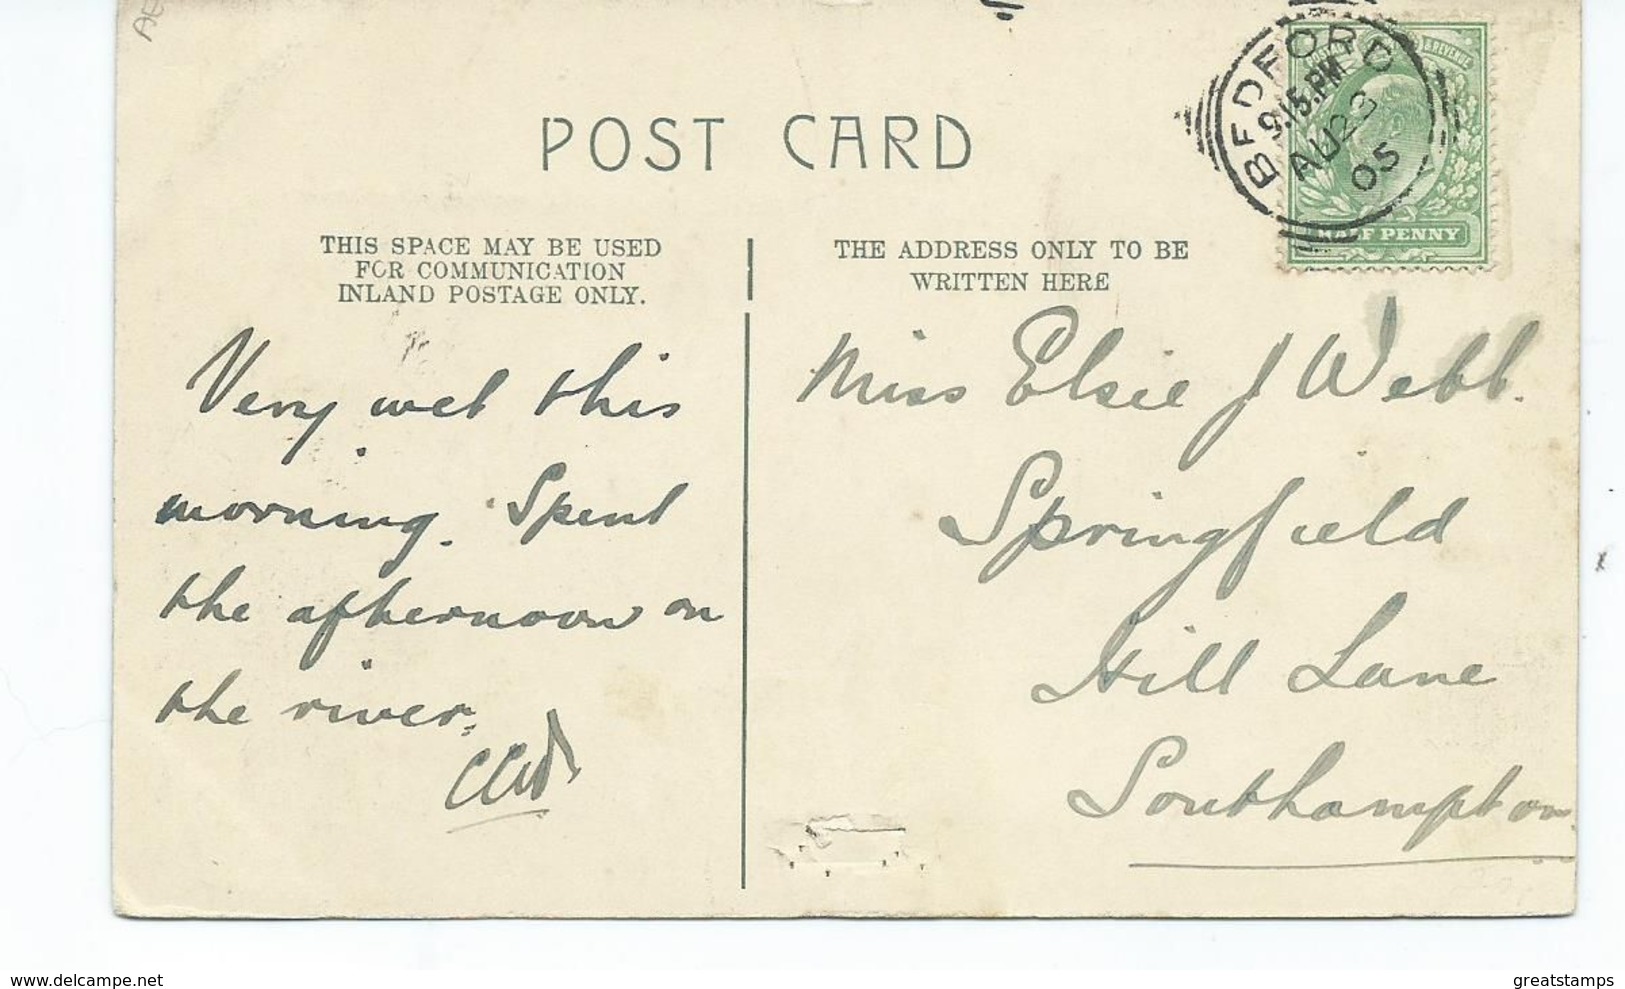 POST CARD
THIS SPACE MAY BE USED
FOR COMMUNICATION
INLAND POSTAGE ONLY.
THE ADDRESS ONLY TO BE
WRITTEN HERE
BEDFORD
9.15.PM
AU 23
05
& REVENUE
HALF PENNY
Very wet this
morning. Spent
the afternoon on
the river.
Miss Elsie J Webb.
Springfield
Hill Lane
Southampton
delcampe.net
greatstamps